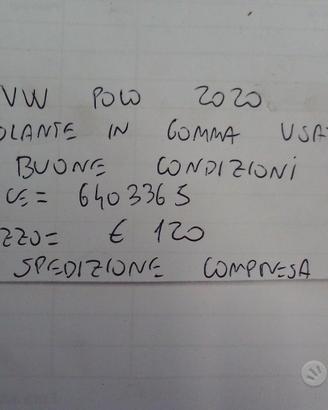 VW POLO 2020
OLANTE IN GOMMA USA
BUONE CONDIZIONI
CE= 6403365
ZZO= € 120
SPEDIZIONE COMPRESA